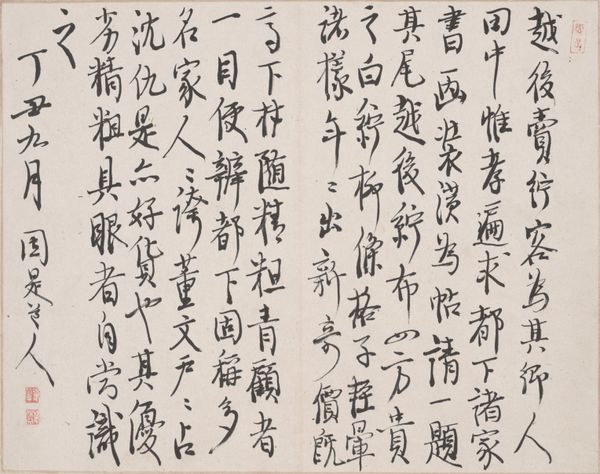 越後賣紵客為其鄉人
田中惟孝遍求都下諸家
書画裝潢為帖請一題
其尾越後紵布四方貴
之白紵柳條格子暈
諸樣年〻出新奇價既
高下材隨精粗青顧者
一目便辨都下固稱多
名家人〻誇董文戸〻占
沈仇是亦好貨也其優
劣精粗具眼者自當識
之
丁丑九月 因是道人